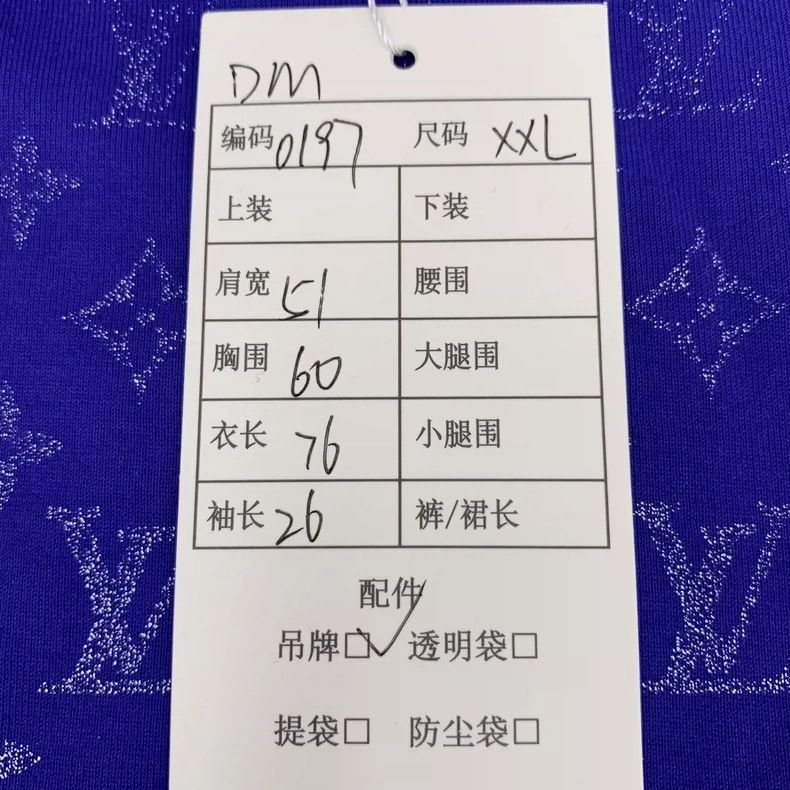 DM
编码 0197 尺码 XXL
上装 下装
肩宽 51 腰围
胸围 60 大腿围
衣长 76 小腿围
袖长 26 裤/裙长
配件
吊牌☑ 透明袋□
提袋□ 防尘袋□
LV LV